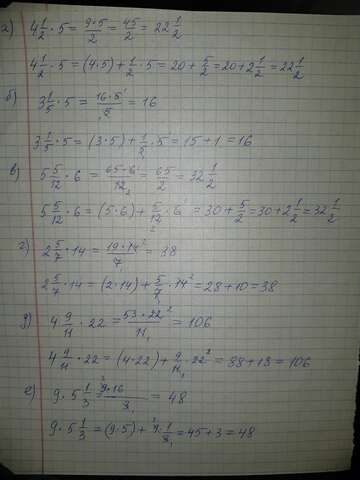 а) 4 1/2 · 5 = 9·5/2 = 45/2 = 22 1/2
4 1/2 · 5 = (4·5) + 1/2 · 5 = 20 + 5/2 = 20 + 2 1/2 = 22 1/2
б) 3 1/5 · 5 = 16·5¹/5₁ = 16
3 1/5 · 5 = (3·5) + 1/5₁ · 5¹ = 15 + 1 = 16
в) 5 5/12 · 6 = 65·6¹/12₂ = 65/2 = 32 1/2
5 5/12 · 6 = (5·6) + 5/12₂ · 6¹ = 30 + 5/2 = 30 + 2 1/2 = 32 1/2
г) 2 5/7 · 14 = 19·14²/7₁ = 38
2 5/7 · 14 = (2·14) + 5/7₁ · 14² = 28 + 10 = 38
д) 4 9/11 · 22 = 53·22²/11₁ = 106
4 9/11 · 22 = (4·22) + 9/11₁ · 22² = 88 + 18 = 106
е) 9 · 5 1/3 = ³9·16/3₁ = 48
9 · 5 1/3 = (9·5) + ³9 · 1/3₁ = 45 + 3 = 48